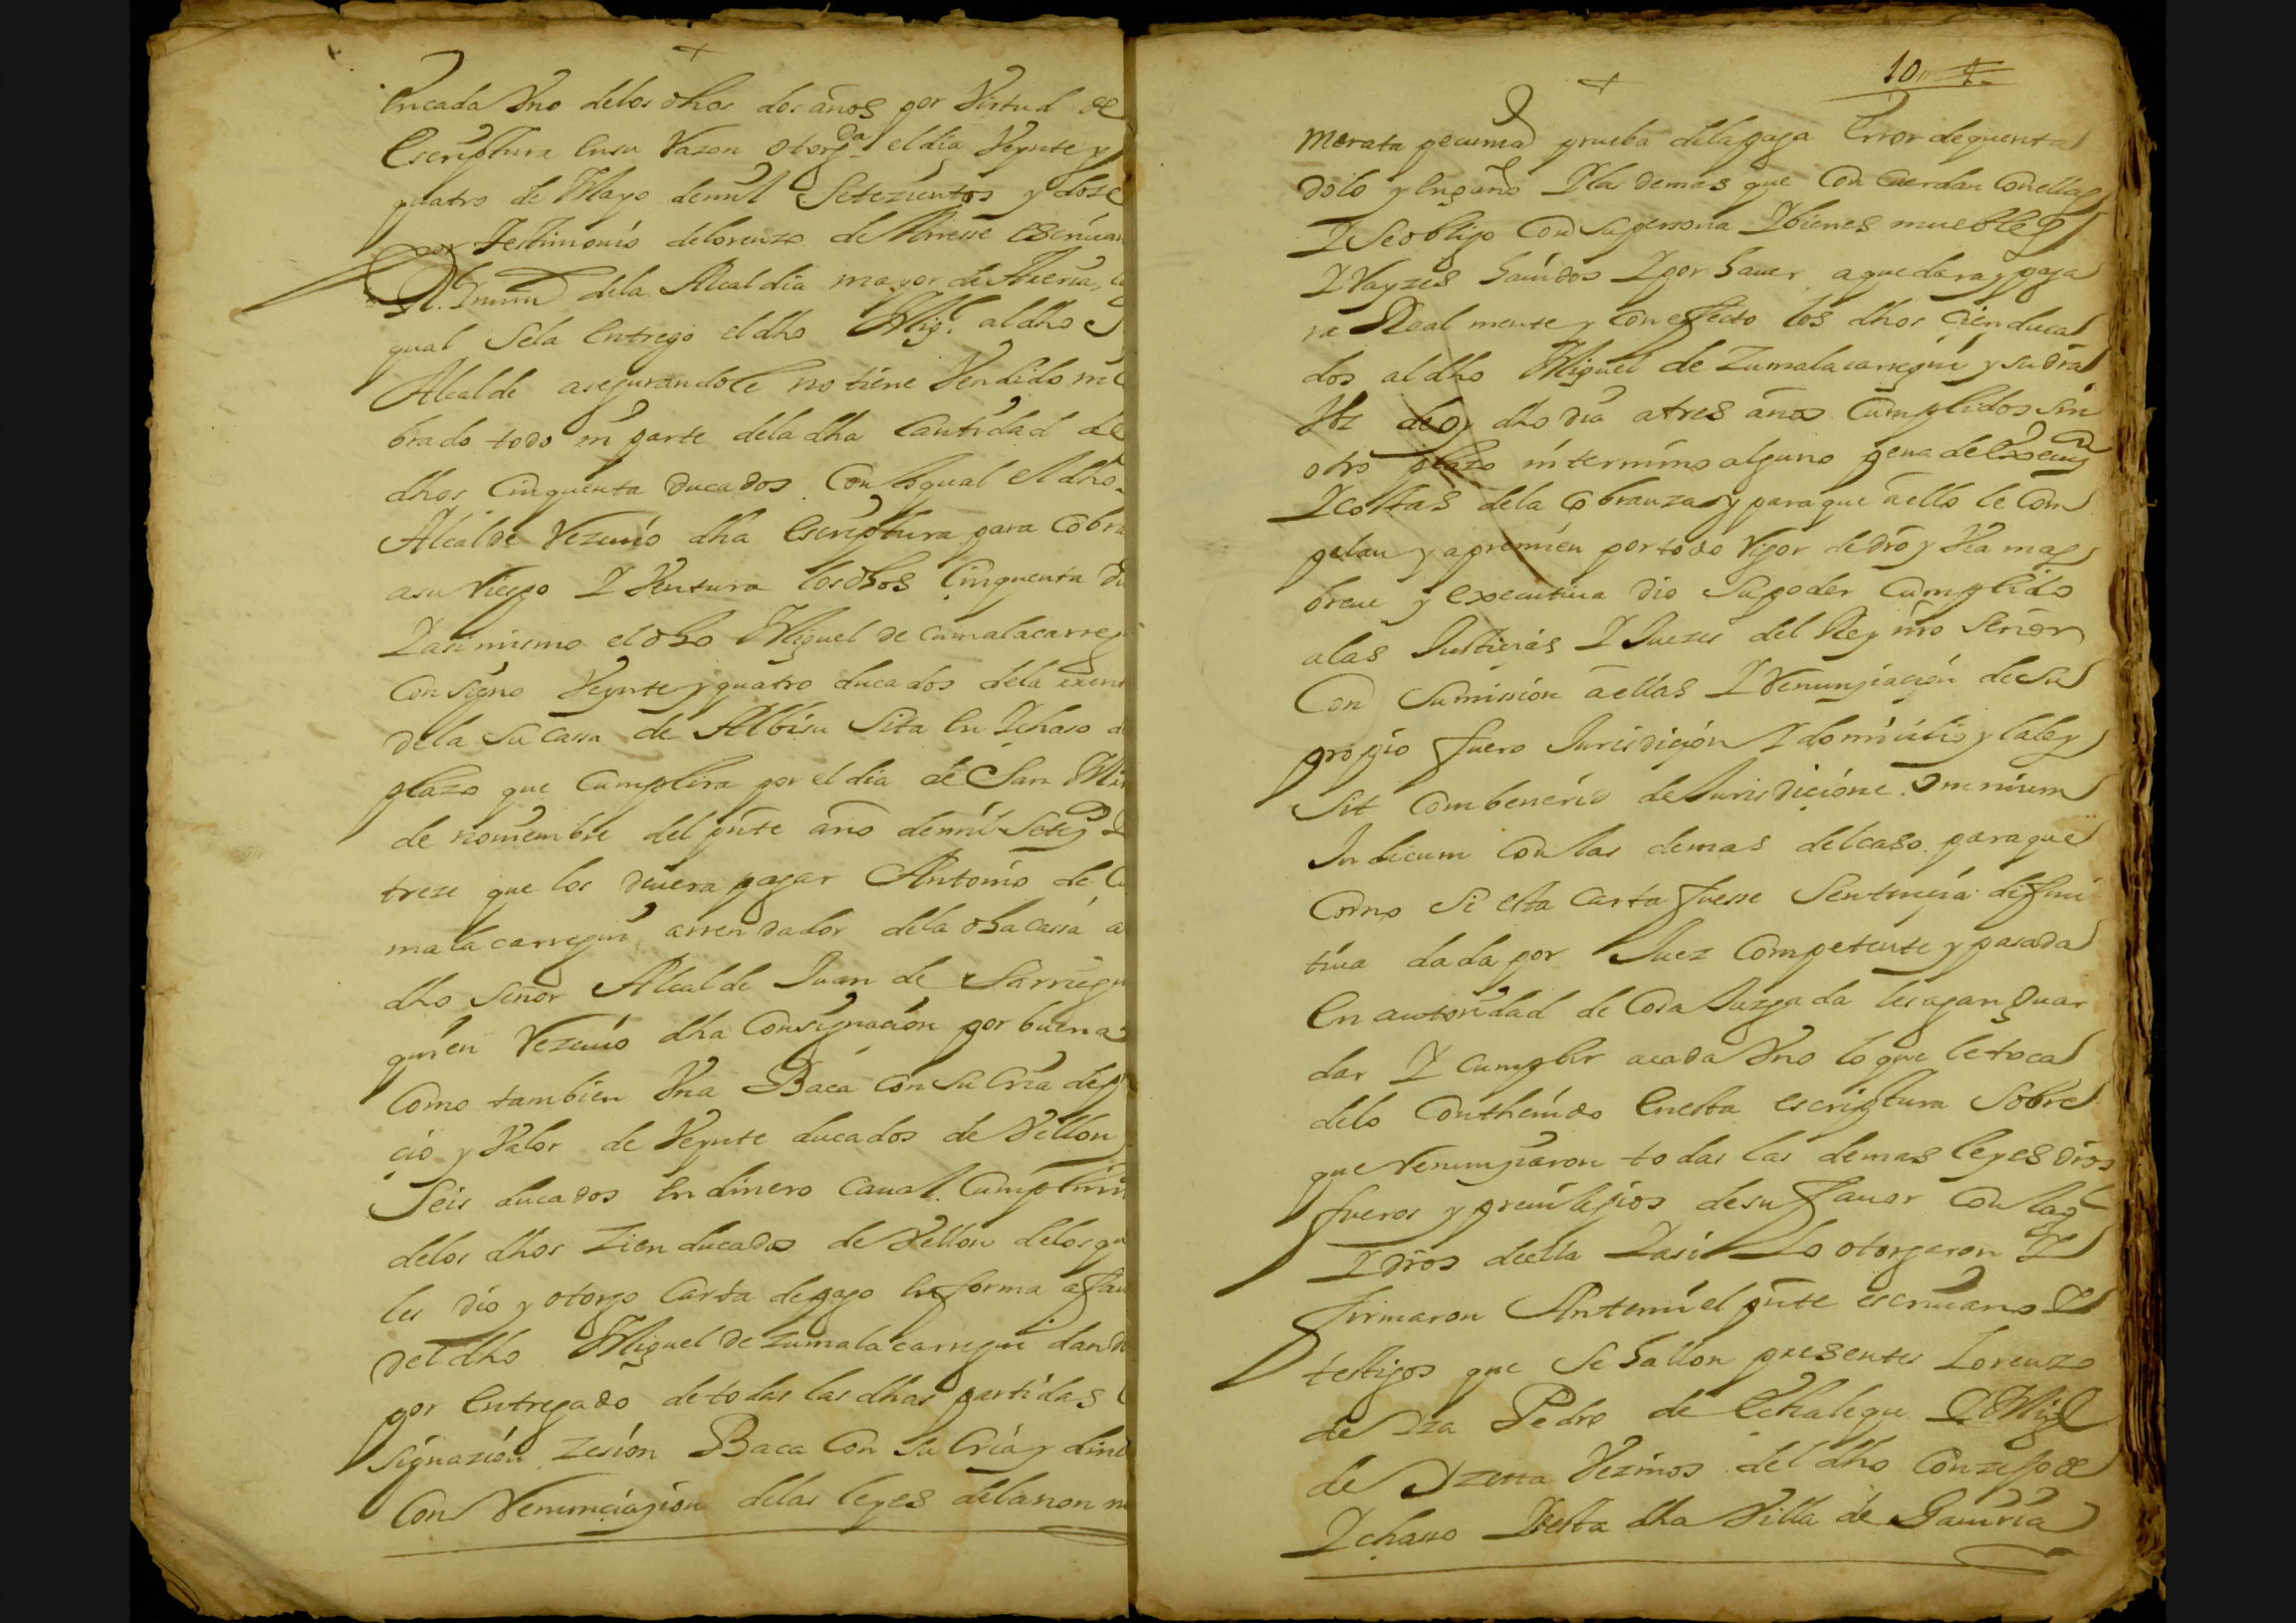 +
en cada Vno de los dhos dos años por Virtud de
escriptura en su Razon otorgda el dia Veynte y
quatro de Mayo de mil Setezientos y doze
por Testimonio de Lorenzo de escriuan
del Numº dela Alcaldia mayor de Areria, la
qual Sela entrego el dho Migl. al dho
Alcalde asegurandole no tiene Vendido ni
brado todo ni parte dela dha Cantidad de
dhos Cinquenta ducados Con lo qual el dho
Alcalde Reziuio dha escriptura para Cobra
asu Riesgo Y Ventura los dhos Cinquenta du
Y asi mismo el dho Miguel de Cumalacarregu
Consigno Veynte y quatro ducados dela
dela Su cassa de Albisu Sita en Ychaso a
plazo que Cumplira por el dia de San Mar
de nouiembre del pnte año de mil Setez Y
treze que los deuera pagar Antonio de Cu
malacarregui arrendador dela dha cassa a
dho Señor Alcalde Juan de Sarriegu
quien Reziuio dha Consignacion por buena
Como tambien Vna Baca Con Su Cria de p
cio y Valor de Veynte ducados de Vellon
Seis ducados en dinero Caual Cumplim
delos dhos Zien ducados de Vellon delos qu
les dio y otorgo Carta de pago en forma a fau
del dho Miguel de Zumalacarregui dand
por entregado de todas las dhas partidas
signazion Zesion Baca Con Su Cria y dine
Con Renunciazion delas leyes dela non n
+
10
merata pecunia prueba dela paga error de quenta
dolo y engaño Y las demas que Con Cuerdan Con ellas
Y Se obligo Con Su persona Y bienes muebles
Y Rayzes hauidos Y por hauer a que dara y paga
ra Real mente y Con effecto los dhos Cien duca
dos al dho Miguel de Zumalacarregui y su dra
de oy dho dia a tres años Cumplidos Sin
otro plazo ni termino alguno pena de execuon
Y costas dela Cobranza y para que a ello le Com
pelan y apremien por todo Rigor de dro y Via mas
breue y executiua dio Su poder Cumplido
alas Justicias Y Juezes del Rey nro Señor
Con Sumission a ellas Y Renunziazion de Su
propio fuero Jurisdicion Y domicilio y la ley
Sit Combenerid de Jurisdicione omnium
Judicum Con las demas del caso para que
Como Si esta Carta fuesse Sentencia difini
tiua dada por Juez Competente y pasada
en autoridad de Cosa Juzgada les agan guar
dar Y cumplir a cada Vno lo que le toca
delo Contheuido en esta escriptura Sobre
que Renunziaron todas las demas leyes dros
fueros y preuilegios de su fauor Con las
Y dros de ella Y asi Lo otorgaron Y
firmaron Ante mi el pnte escriuano Y
testigos que Se hallon presentes Lorenzo
de Yza Pedro de Echalequ Y Migl
de Yzetta Vezinos del dho Conzejo de
Ychasso Y desta dha Villa de Gauiria